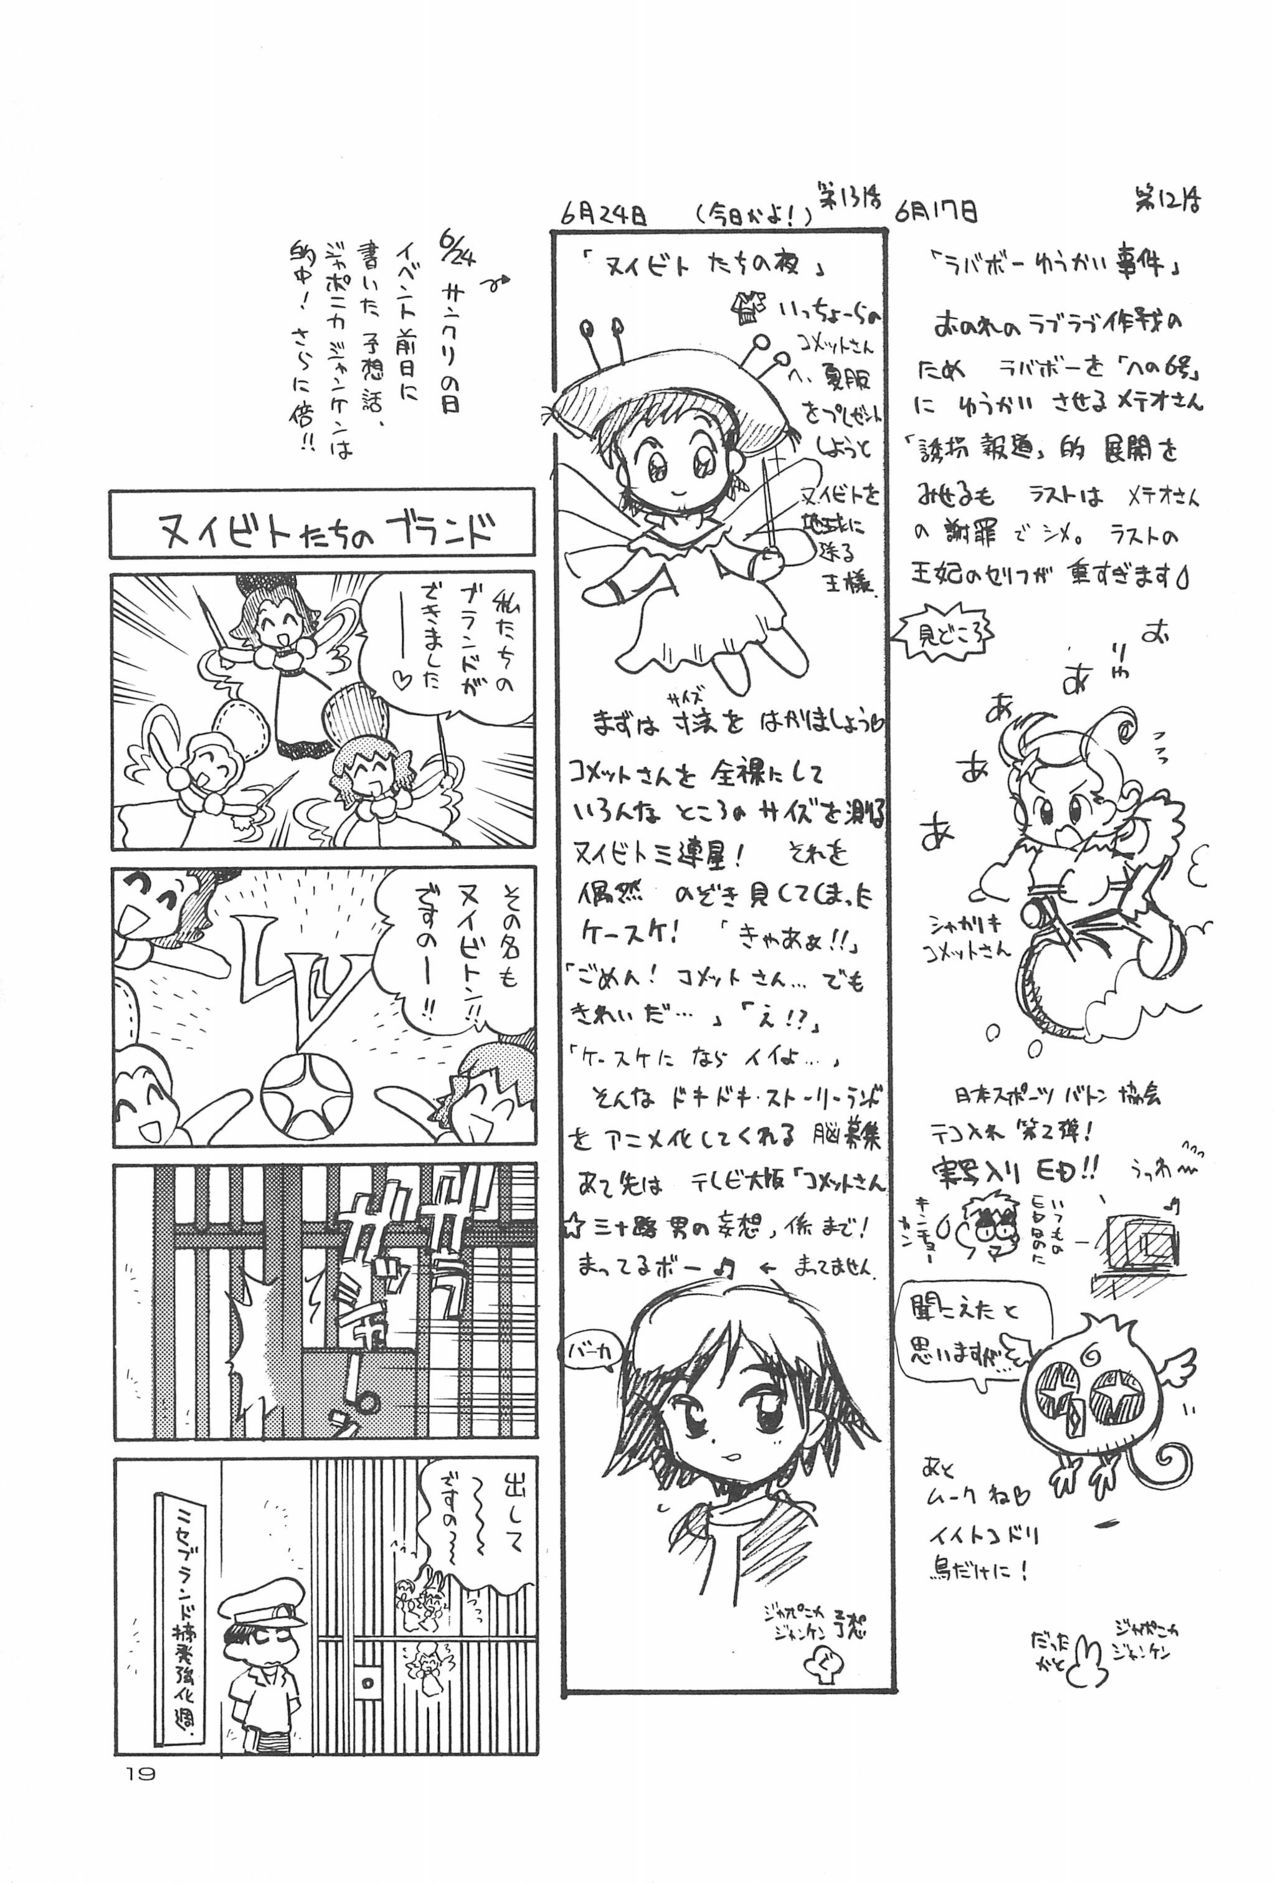 6月17日
第12話
「ラバボーゆうかい事件」
おのれのラブラブ作戦の
ため ラバボーを「への6号」
に ゆうかい させる メテオさん
「誘拐報道」的 展開を
みせるも ラストは メテオさん
の 謝罪で シメ。 ラストの
王妃のセリフが 重すぎます
見どころ
お
りゃ
あ
あ
あ
あ
シャカリキ
コメットさん
日本スポーツ バトン 協会
テコ入れ 第2弾!
実写入り ED!!
うっわ〜
いつもの
EDなのに
キンチョー
カン
聞こえたと
思いますが…
あと
ムークね♡
イイトコドリ
鳥だけに!
ジャポニカ
ジャンケン
だった
かと
6月24日
(今日かよ!)
第13話
「ヌイビト たちの夜」
いっちょーらの
コメットさん
へ、夏服
をプレゼント
しようと
ヌイビトを
地球に
送る
王様.
まずは 寸法を はかりましょう♡
サイズ
コメットさんを 全裸にして
いろんな ところの サイズを 測る
ヌイビト三連星! それを
偶然 のぞき見してしまった
ケースケ! 「きゃあぁ!!」
「ごめん! コメットさん… でも
きれいだ…」「え!?」
「ケースケに なら イイよ…」
そんな ドキドキ・ストーリーランド
を アニメ化してくれる 脳募集
あて先は テレビ大阪「コメットさん
☆三十路男の妄想」係まで!
まってるボー♫ ← まってません.
バーカ
ジャポニカ
ジャンケン
予想
ぐ
6/24 サンクリの日
イベント前日に
書いた予想話、
ジャポニカジャンケンは
的中! さらに倍!!
ヌイビトたちの ブランド
私たちの
ブランドが
できました
ーー♡
その名も
ヌイビトン!!
ですのー!!
LV
ガラガラ
ガッシャン
出して
〜〜〜
ですの〜
ニセブランド摘発強化週.
19